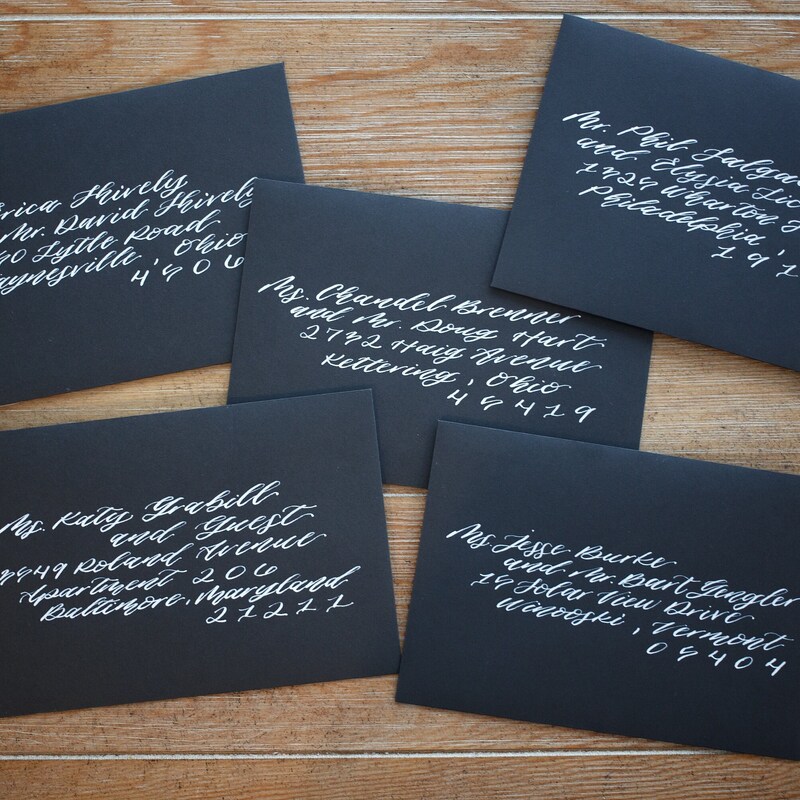 Erica Shively
Mr. David Shively
Lytle Road
Waynesville, Ohio
4506
Mr. Phil Salgad
and Elysia Lic
Wharton S
Philadelphia,
191
Ms. Chandel Brenner
and Mr. Doug Hart
2732 Haig Avenue
Kettering, Ohio
45419
Ms. Katy Grabill
and Guest
3949 Roland Avenue
Apartment 206
Baltimore, Maryland
21211
Ms. Jesse Burke
and Mr. Bart Gengler
Solar View Drive
Winooski, Vermont
05404